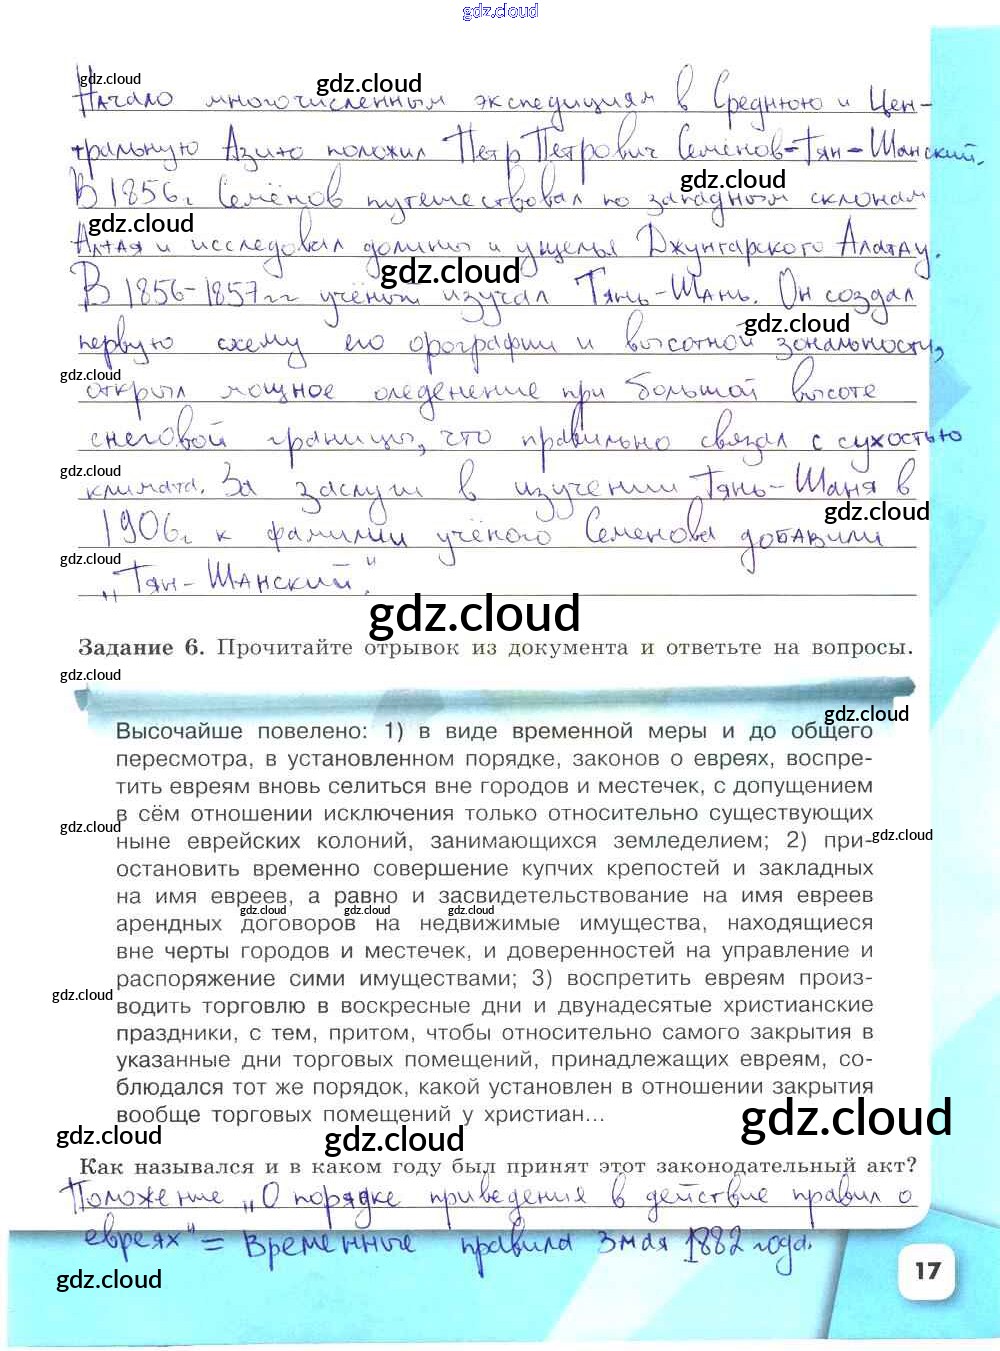 gdz.cloud
gdz.cloud
gdz.cloud
Начало многочисленным экспедициям в Среднюю и Цен-
тральную Азию положил Пётр Петрович Семёнов-Тян-Шанский.
gdz.cloud
В 1856г Семёнов путешествовал по западным склонам
gdz.cloud
Алтая и исследовал долины и ущелья Джунгарского Алатау.
gdz.cloud
В 1856-1857гг учёный изучал Тянь-Шань. Он создал
gdz.cloud
первую схему его орографии и высотной зональности,
gdz.cloud
открыл мощное оледенение при большой высоте
снеговой границы, что правильно связал с сухостью
gdz.cloud
климата. За заслуги в изучении Тянь-Шаня в
gdz.cloud
1906г к фамилии учёного Семенова добавили
gdz.cloud
„Тян-Шанский."
gdz.cloud
Задание 6. Прочитайте отрывок из документа и ответьте на вопросы.
gdz.cloud
gdz.cloud
Высочайше повелено: 1) в виде временной меры и до общего
пересмотра, в установленном порядке, законов о евреях, воспре-
тить евреям вновь селиться вне городов и местечек, с допущением
в сём отношении исключения только относительно существующих
gdz.cloud
ныне еврейских колоний, занимающихся земледелием; 2) при-
gdz.cloud
остановить временно совершение купчих крепостей и закладных
на имя евреев, а равно и засвидетельствование на имя евреев
gdz.cloud gdz.cloud gdz.cloud
арендных договоров на недвижимые имущества, находящиеся
вне черты городов и местечек, и доверенностей на управление и
распоряжение сими имуществами; 3) воспретить евреям произ-
gdz.cloud
водить торговлю в воскресные дни и двунадесятые христианские
праздники, с тем, притом, чтобы относительно самого закрытия в
указанные дни торговых помещений, принадлежащих евреям, со-
блюдался тот же порядок, какой установлен в отношении закрытия
вообще торговых помещений у христиан...
gdz.cloud
gdz.cloud
gdz.cloud
Как назывался и в каком году был принят этот законодательный акт?
Положение „О порядке приведения в действие правил о
евреях" = Временные правила 3 мая 1882 года.
gdz.cloud
17